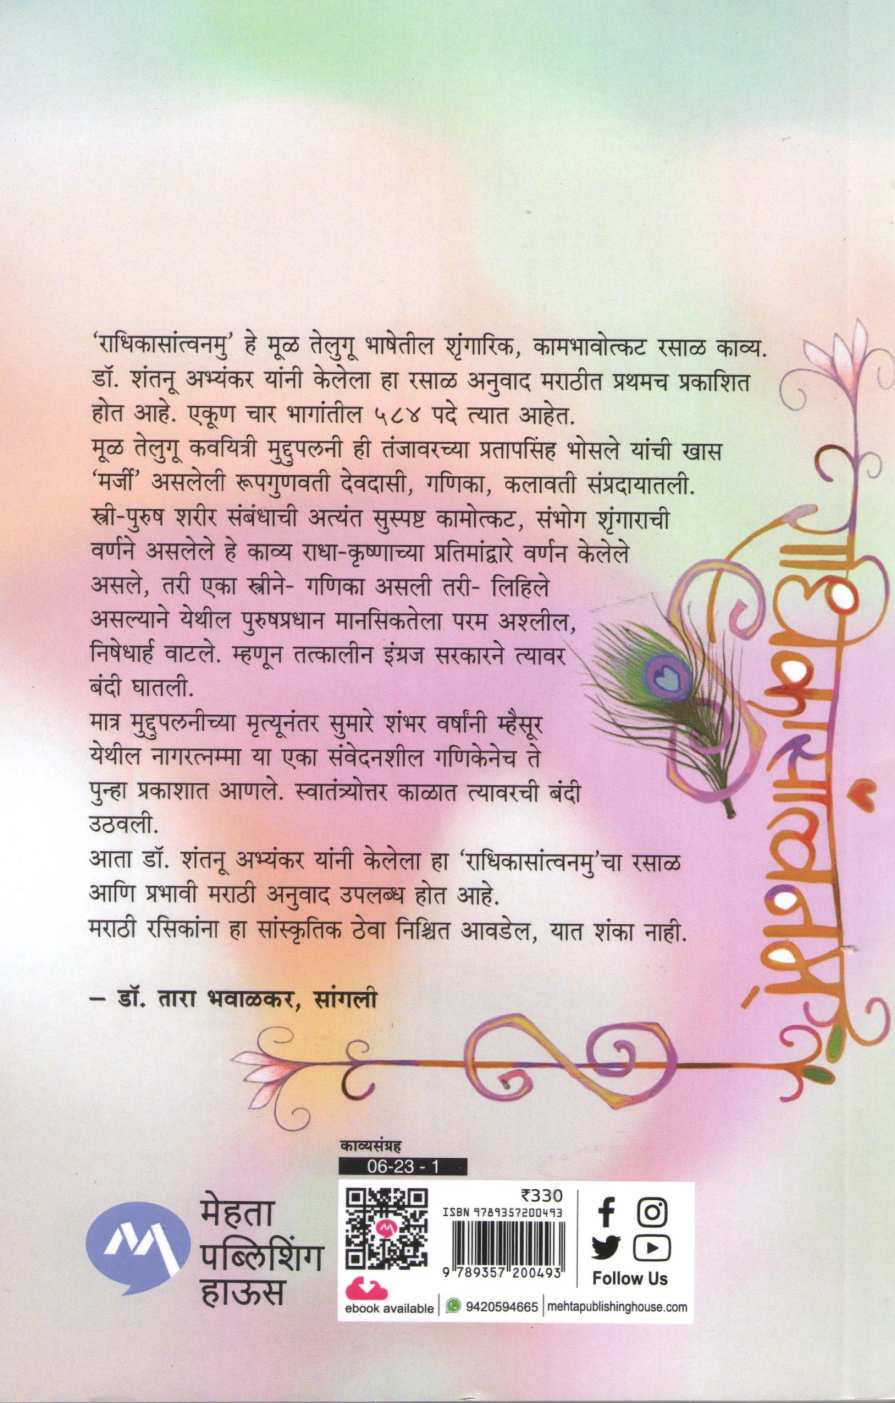 ‘राधिकासांत्वनमु’ हे मूळ तेलुगू भाषेतील शृंगारिक, कामभावोत्कट रसाळ काव्य.
डॉ. शंतनू अभ्यंकर यांनी केलेला हा रसाळ अनुवाद मराठीत प्रथमच प्रकाशित
होत आहे. एकूण चार भागांतील ५८४ पदे त्यात आहेत.
मूळ तेलुगू कवयित्री मुद्दुपलनी ही तंजावरच्या प्रतापसिंह भोसले यांची खास
‘मर्जी’ असलेली रूपगुणवती देवदासी, गणिका, कलावती संप्रदायातली.
स्त्री-पुरुष शरीर संबंधाची अत्यंत सुस्पष्ट कामोत्कट, संभोग शृंगाराची
वर्णने असलेले हे काव्य राधा-कृष्णाच्या प्रतिमांद्वारे वर्णन केलेले
असले, तरी एका स्त्रीने- गणिका असली तरी- लिहिले
असल्याने येथील पुरुषप्रधान मानसिकतेला परम अश्लील,
निषेधार्ह वाटले. म्हणून तत्कालीन इंग्रज सरकारने त्यावर
बंदी घातली.
मात्र मुद्दुपलनीच्या मृत्यूनंतर सुमारे शंभर वर्षांनी म्हैसूर
येथील नागरत्नम्मा या एका संवेदनशील गणिकेनेच ते
पुन्हा प्रकाशात आणले. स्वातंत्र्योत्तर काळात त्यावरची बंदी
उठवली.
आता डॉ. शंतनू अभ्यंकर यांनी केलेला हा ‘राधिकासांत्वनमु’चा रसाळ
आणि प्रभावी मराठी अनुवाद उपलब्ध होत आहे.
मराठी रसिकांना हा सांस्कृतिक ठेवा निश्चित आवडेल, यात शंका नाही.
– डॉ. तारा भवाळकर, सांगली
राधिकासांत्वनमु
काव्यसंग्रह
06-23 - 1
मेहता
पब्लिशिंग
हाऊस
₹330
ISBN 9789357200493
9 789357 200493
Follow Us
ebook available
9420594665
mehtapublishinghouse.com